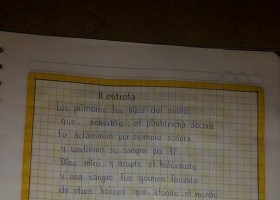 II estrofa
Los primeros los hijos del suelo
que, soberbio, el pichincha decora
te aclamaron por siempre señora
y vertieron su sangre por ti
Dios miró y aceptó el holocausto
y esa sangre fue germen fecundo
de otros héroes que atónito el mundo